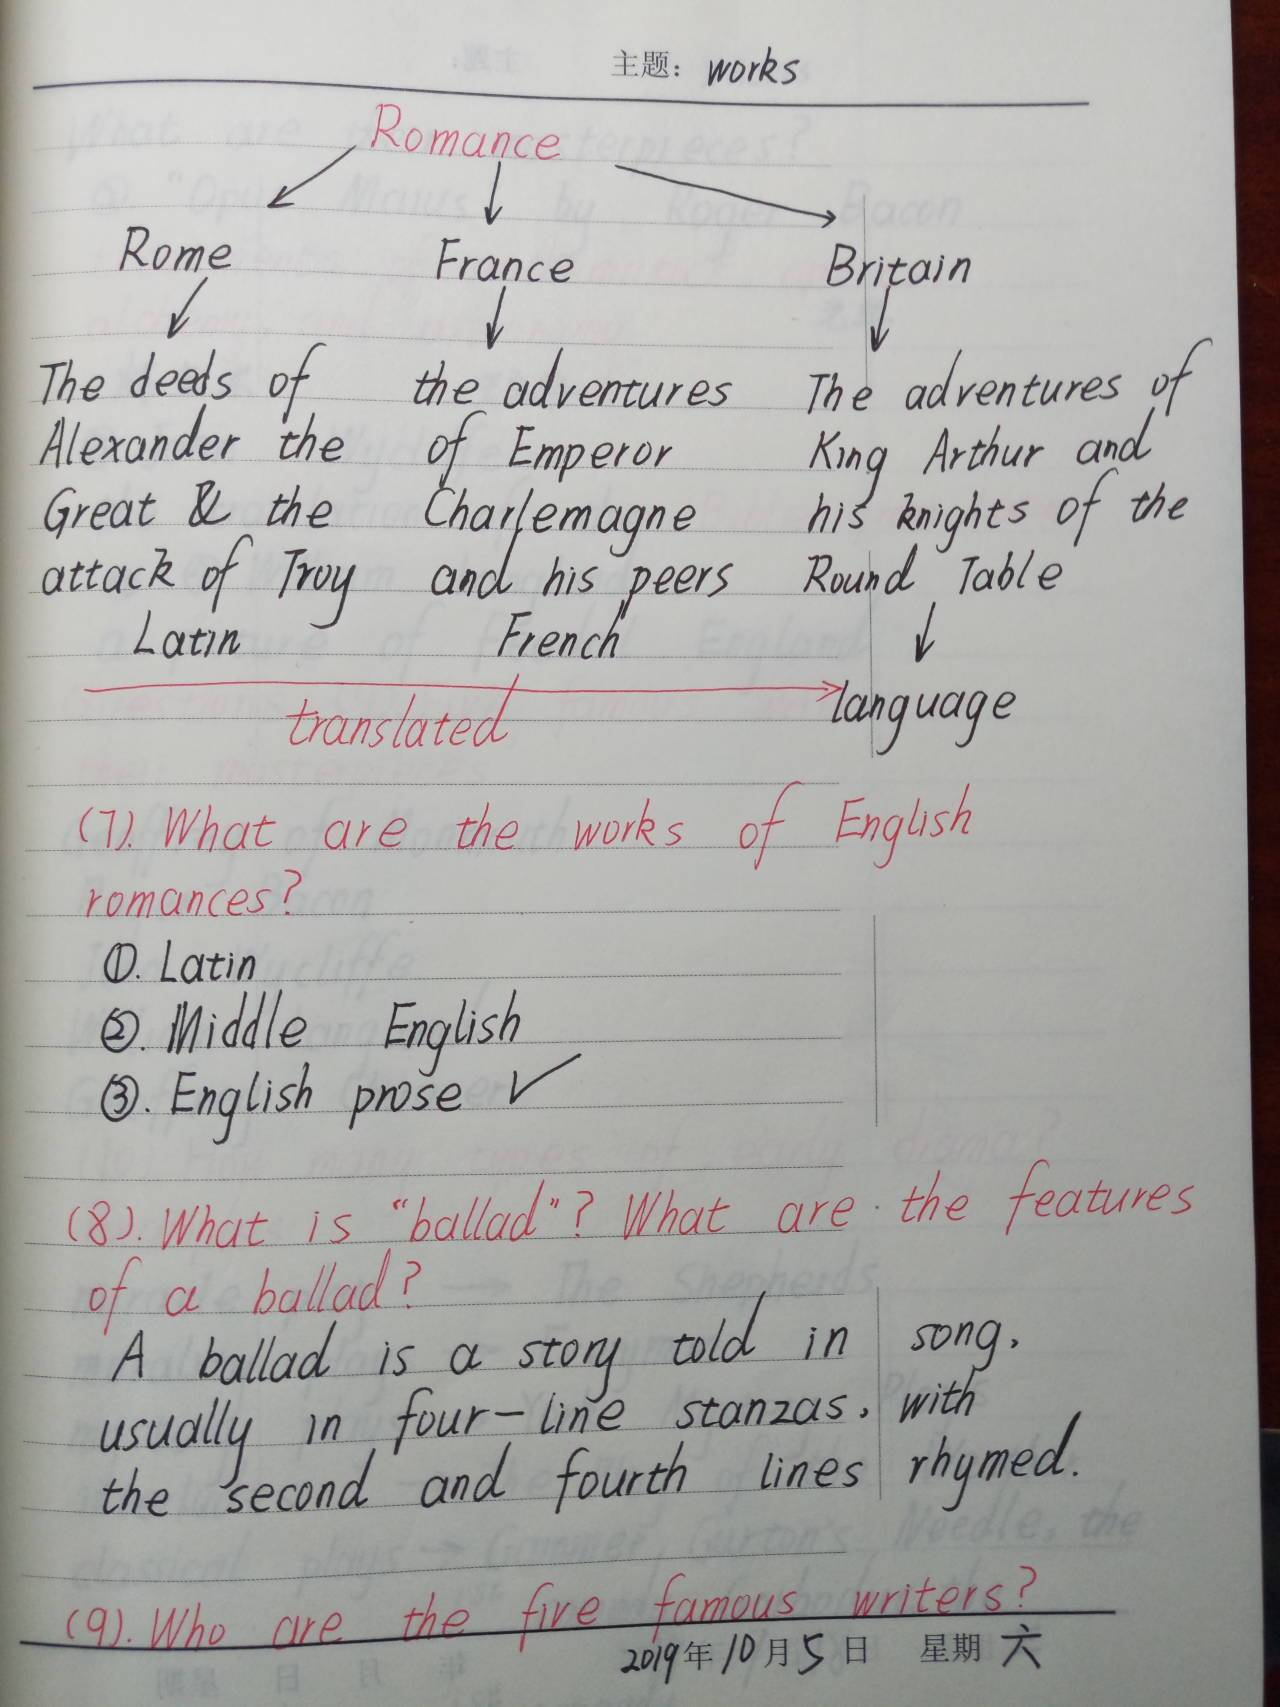 主题: works
Romance
Rome France Britain
The deeds of the adventures The adventures of
Alexander the of Emperor King Arthur and
Great & the Charlemagne his knights of the
attack of Troy and his peers Round Table
Latin French
translated language
(7). What are the works of English
romances?
①. Latin
②. Middle English
③. English prose ✓
(8). What is "ballad"? What are the features
of a ballad?
A ballad is a story told in song,
usually in four-line stanzas, with
the second and fourth lines rhymed.
(9). Who are the five famous writers?
2019年10月5日 星期六